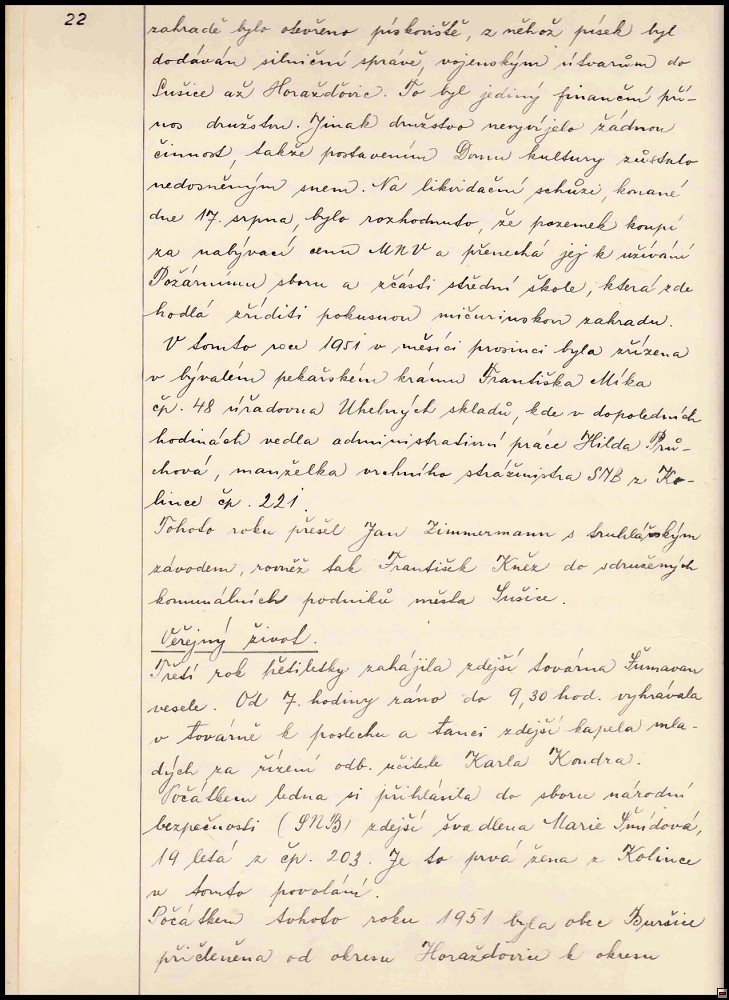 22
zahradě bylo otevřeno pískoviště, z něhož písek byl
dodáván silniční správě, vojenským útvarům do
Sušice až Horažďovic. To byl jediný finanční pří-
nos družstva. Jinak družstvo nevyvíjelo žádnou
činnost, takže postavením Domu kultury zůstalo
nedosněným snem. Na likvidační schůzi, konané
dne 17. srpna, bylo rozhodnuto, že pozemek koupí
za nabývací cenu MNV a přenechá jej k užívání
Požárnímu sboru a zčásti střední škole, která zde
hodlá zříditi pokusnou mičurinskou zahradu.
V tomto roce 1951 v měsíci prosinci byla zřízena
v bývalém pekařském krámu Františka Míka
čp. 48 úřadovna Uhelných skladů, kde v dopoledních
hodinách vedla administrativní práce Hilda Prů-
chová, manželka vrchního strážmistra SNB z Ko-
lince čp. 221.
Tohoto roku přešel Jan Zimmermann s truhlářským
závodem, rovněž tak František Kněz do sdružených
komunálních podniků města Sušice.
Veřejný život.
Třetí rok pětiletky zahájila zdejší továrna Šumavan
vesele. Od 7. hodiny ráno do 9,30 hod. vyhrávala
v továrně k poslechu a tanci zdejší kapela mla-
dých za řízení odb. učitele Karla Kondra.
Počátkem ledna si přihlásila do sboru národní
bezpečnosti (SNB) zdejší švadlena Marie Šmídová,
19 letá z čp. 203. Je to prvá žena z Kolince
v tomto povolání.
Počátkem tohoto roku 1951 byla obec Buršice
přičleněna od okresu Horažďovice k okresu